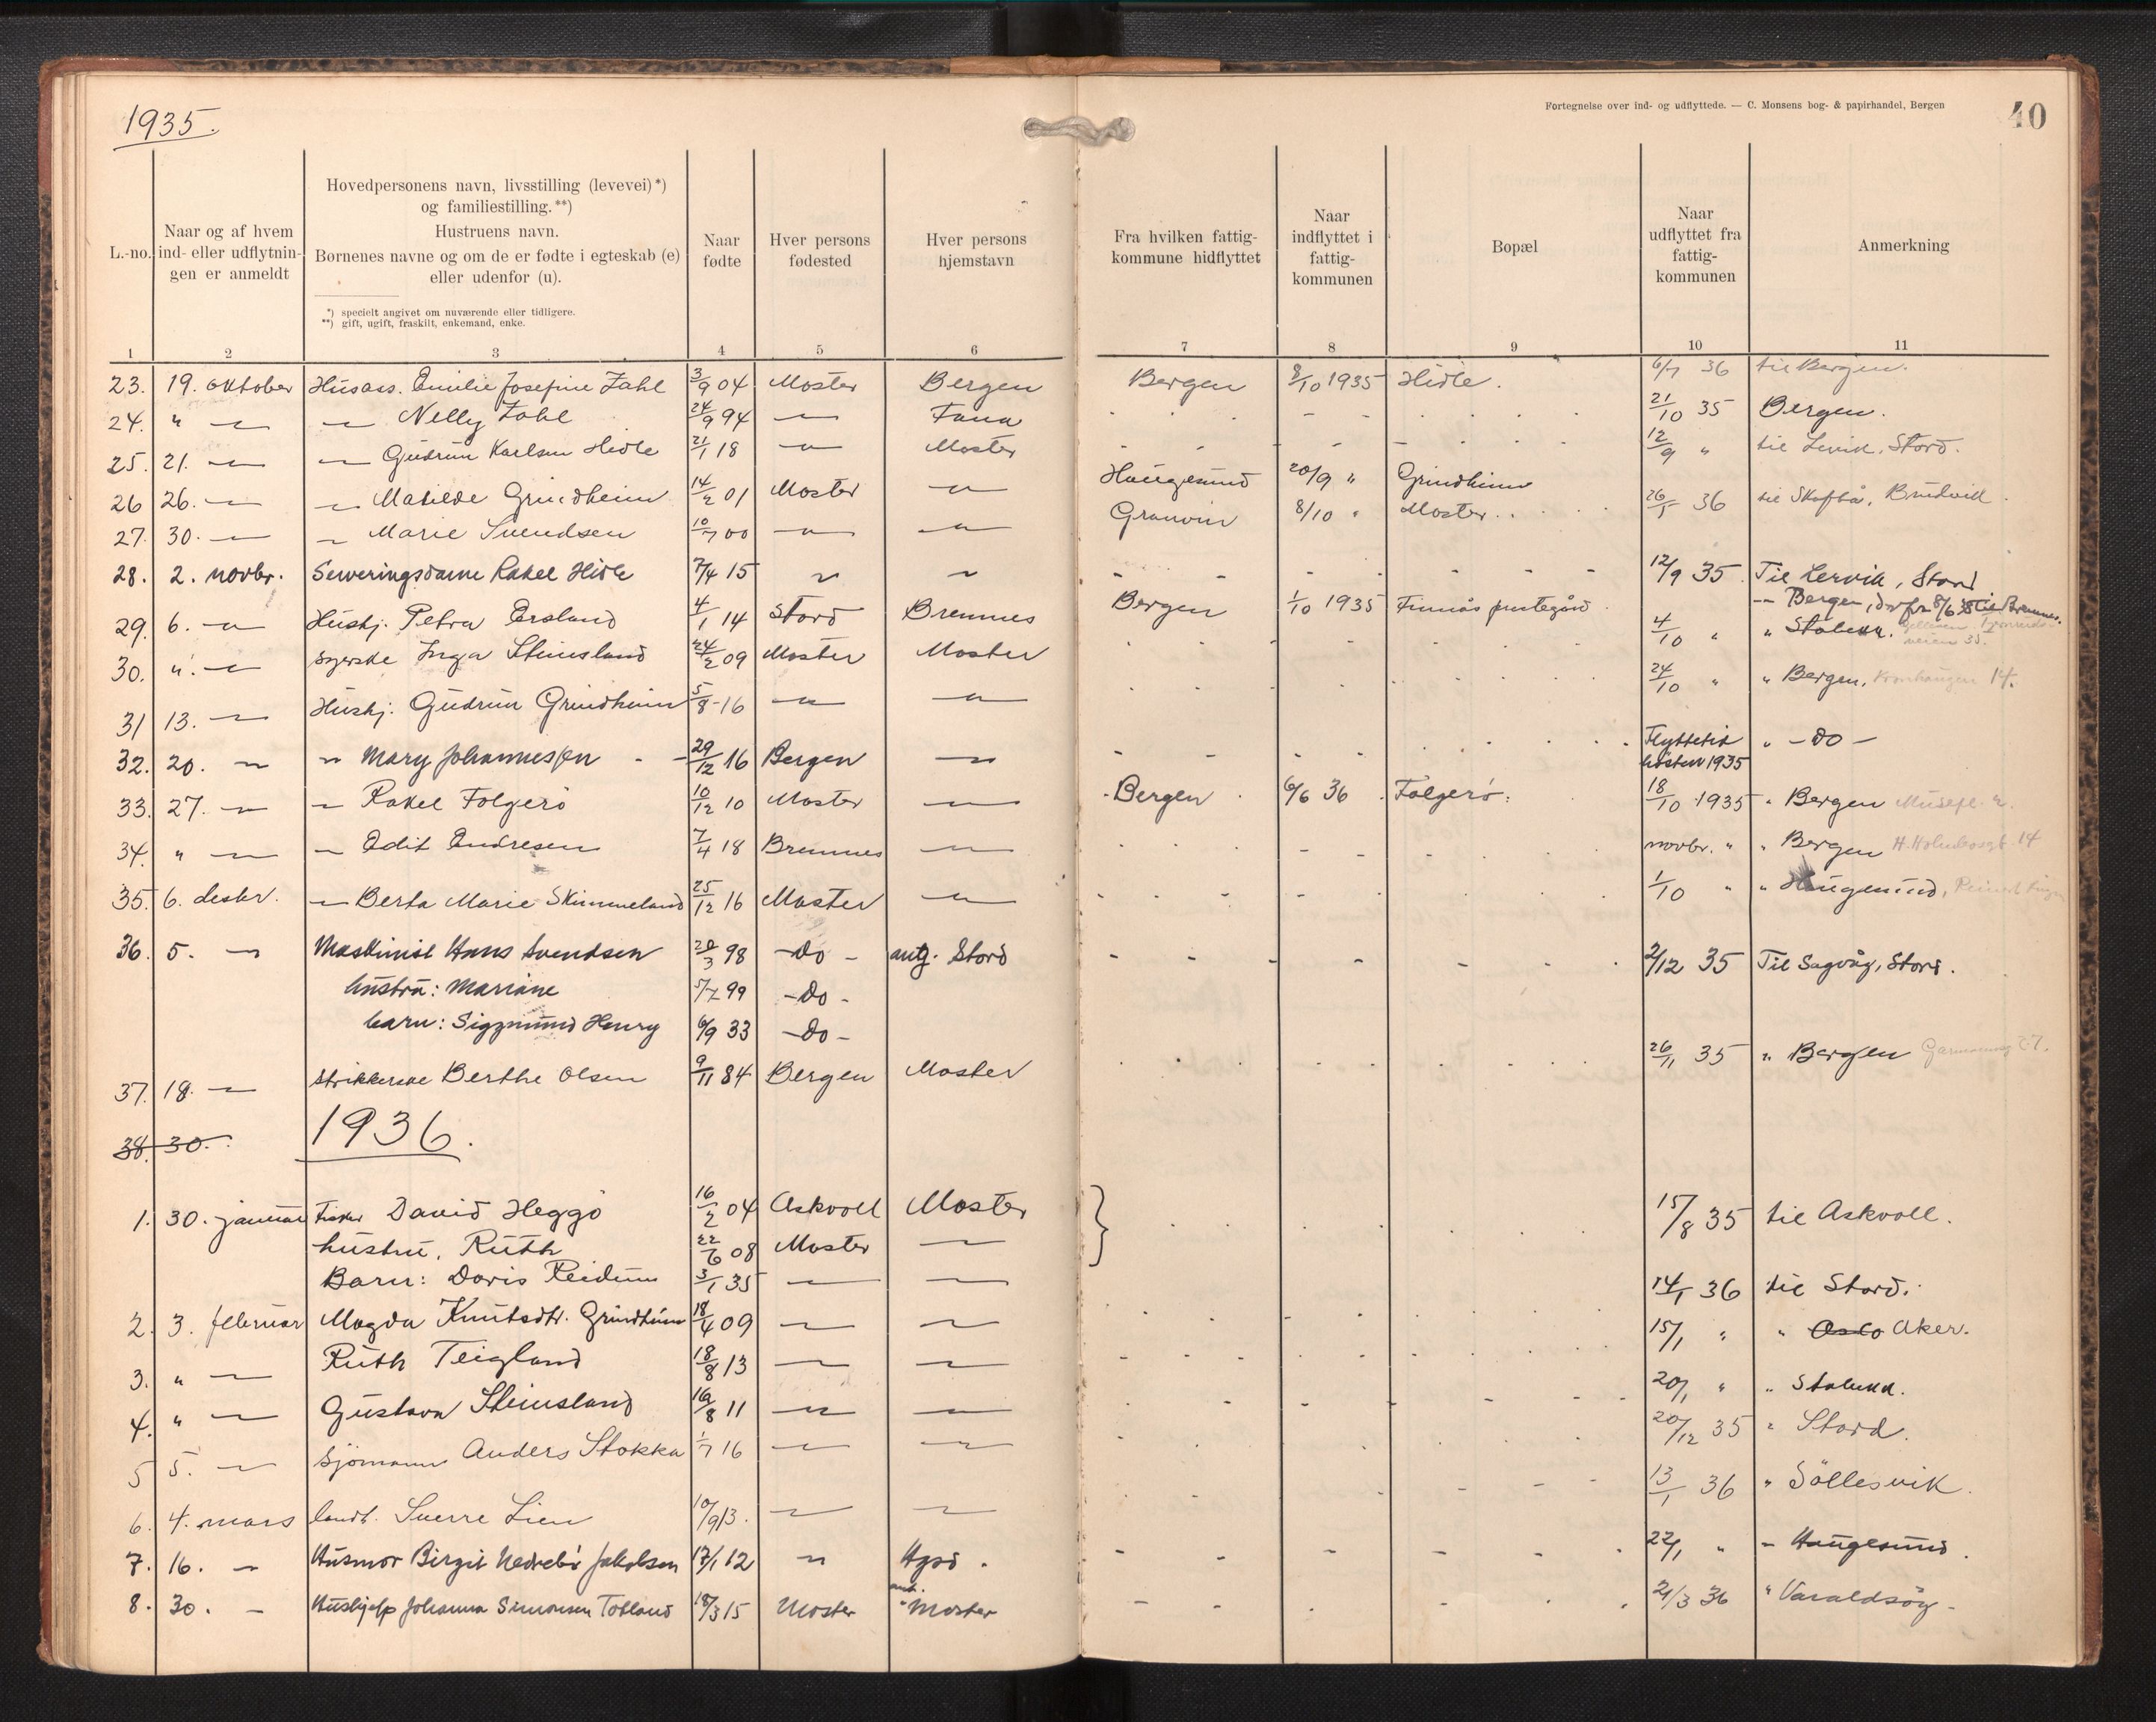 1935.
Fortegnelse over ind- og udflyttede. — C. Monsens bog- & papirhandel, Bergen
40
L.-no.
Naar og af hvem ind- eller udflytningen er anmeldt
Hovedpersonens navn, livsstilling (levevei)*) og familiestilling.**)
Hustruens navn.
Børnenes navne og om de er fødte i egteskab (e) eller udenfor (u).
*) specielt angivet om nuværende eller tidligere.
**) gift, ugift, fraskilt, enkemand, enke.
Naar fødte
Hver persons fødested
Hver persons hjemstavn
Fra hvilken fattigkommune hidflyttet
Naar indflyttet i fattigkommunen
Bopæl
Naar udflyttet fra fattigkommunen
Anmerkning
1 2 3 4 5 6 7 8 9 10 11
23. 19. oktober Husass. Emilie Josefine Zahl 3/9 04 Moster Bergen Bergen 8/10 1935 Hidle. 6/7 36 til Bergen.
24. " — — Nelly Zahl 24/9 94 — Fana 21/10 35 Bergen.
25. 21. — — Gudrun Karlsen Hidle 21/1 18 — Moster 12/9 " til Lervik, Stord.
26 26. — — Matilde Grindheim 14/2 01 Moster — Haugesund 20/9 " Grindheim
27. 30. — — Marie Svendsen 10/7 00 — — Granvin 8/10 " Moster. 26/1 36 til
28. 2. novbr. Serveringsdame Rakel Hidle 7/4 15 " " 12/9 35 Til Lervik, Stord
29. 6. — Hushj. Petra Ersland 4/1 14 Stord Bremnes Bergen 1/10 1935 Finnås prestegård — Bergen, derfra 8/6 38 til Bremnes.
30. " — syerske Inga Steinsland 24/2 09 Moster Moster 4/10 " " Stabekk.
31 13. — Hushj. Gudrun Grindheim 5/8 16 — — 24/10 " " Bergen, Kronhaugen 14.
32. 20. — " Mary Johannessen 29/12 16 Bergen — Flyttetid høsten 1935 " — do —
33. 27. — — Rakel Folgerö 10/12 10 Moster — Bergen 6/6 36 Folgerö. 18/10 1935 " Bergen
34. " — — Edit Andresen 7/4 18 Bremnes — novbr. " " Bergen H. Holmboesgt. 14
35. 6. desbr. — Berta Marie Skimmeland 25/12 16 Moster — 1/10 " " Haugesund,
36. 5. — Maskinist Hans Svendsen 20/3 98 — do — antg. Stord 2/12 35 Til Sagvåg, Stord.
hustru: Mariane 5/2 99 — do —
barn: Sigmund Henry 6/9 33 — do —
37. 18. — Strikkerske Berthe Olsen 9/11 84 Bergen Moster 26/11 35 " Bergen
38. 30.
1936.
1. 30. januar Fisker David Heggö 16/2 04 Askvoll Moster } 15/8 35 til Askvoll.
hustru. Ruth 22/6 08 Moster —
Barn: Doris Reidun 3/1 35 — —
2. 3. februar Magda Knutsdtr. Grindheim 18/4 09 — — 14/1 36 til Stord.
3. " — Ruth Teigland 18/8 13 — — 15/1 " " Oslo Aker.
4. " — Gustava Steinsland 16/8 11 — — 20/1 " " Stabekk.
5 5. — Sjömann Anders Stokka 1/7 16 — — 20/12 35 " Stord.
6. 4. mars landt. Sverre Lien 10/9 13. — — 13/1 36 " Söllesvik.
7. 16. — Husmor Birgit Nedrebö Jakobsen 17/1 12 " Hgsd. 22/1 " — Haugesund.
8. 30. — Hushjelp Johanna Simonsen Totland 18/3 15 Moster ant. Moster 21/3 36 " Varaldsöy